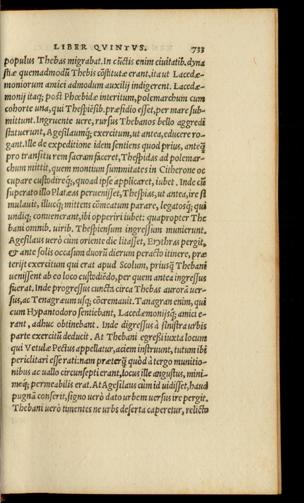 LIBER QVINTVS. 733
populus Thebas migrabat. In cūctis enim ciuitatib. dyna
stiæ quemadmodū Thebis cōstitutæ erant, ita ut Lacedæ-
moniorum amici admodum auxilij indigerent. Lacedæ-
monij itaq; post Phœbidæ interitum, polemarchum cum
cohorte una, qui Thespiēsib. præsidio esset, per mare sub-
mittunt. Ingruente uere, rursus Thebanos bello aggredi
statuerunt, Agesilaumq; exercitum, ut antea, educere ro-
gant. Ille de expeditione idem sentiens quod prius, anteq̄
pro transitu rem sacram faceret, Thespidas ad polemar-
chum mittit, quem montium summitates in Citherone oc
cupare custodireq;, quoad ipse applicaret, iubet. Inde cū
superato illo Platæas peruenisset, Thespias, ut antea, ire si
mulauit, illucq; mittens cōmeatum parare, legatosq; qui
undiq; conuenerant, ibi opperiri iubet: quapropter The
bani omnib. uirib. Thespiensum ingressum munierunt.
Agesilaus uerò cùm oriente die litasset, Erythras pergit,
& ante solis occasum duorū dierum peracto itinere, præ
terijt exercitum qui erat apud Scolum, priusq̄ Thebani
uenissent ab eo loco custodiēdo, per quem antea ingressus
fuerat. Inde progressus cuncta circa Thebas aurorā uer-
sus, ac Tenagræum usq; cōcremauit. Tanagram enim, qui
cum Hypantodoro sentiebant, Lacedæmonijsq; amici e-
rant, adhuc obtinebant. Inde digressus à sinistra urbis
parte exercitū deducit. At Thebani egressi iuxta locum
qui Vetulæ Pectus appellatur, aciem instruunt, tutum ibi
periclitari esse rati: nam præterq̄ quòd à tergo munitio-
nibus ac uallo circunsepti erant, locus ille angustus, mini-
meq; permeabilis erat. At Agesilaus cùm id uidisset, haud
pugnā conserit, signo uerò dato urbem uersus ire pergit.
Thebani uerò timentes ne urbs deserta caperetur, relicto